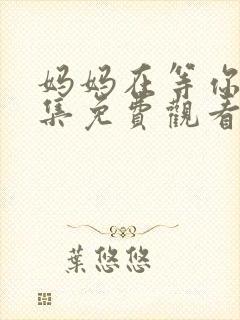 妈妈在等你
集免费觀看
葉悠悠